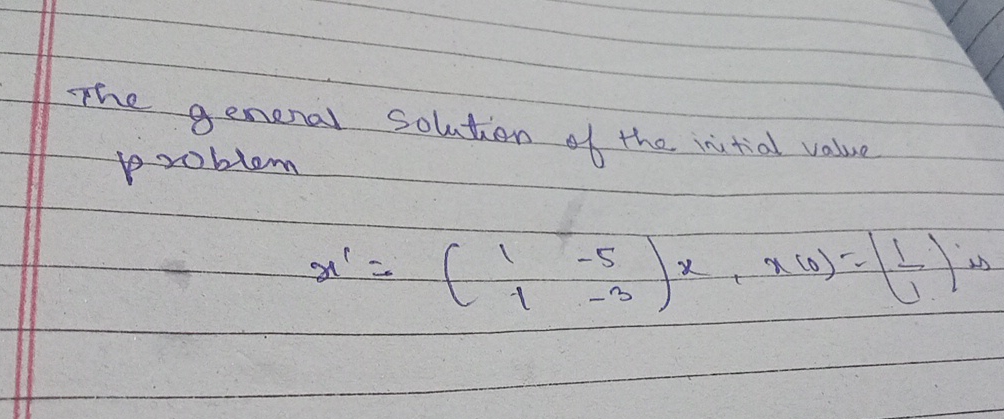 The general solution of the initial value
problem
x' = ( 1 -5 ) x , x(0) = ( 1 ) is
1 -3 1